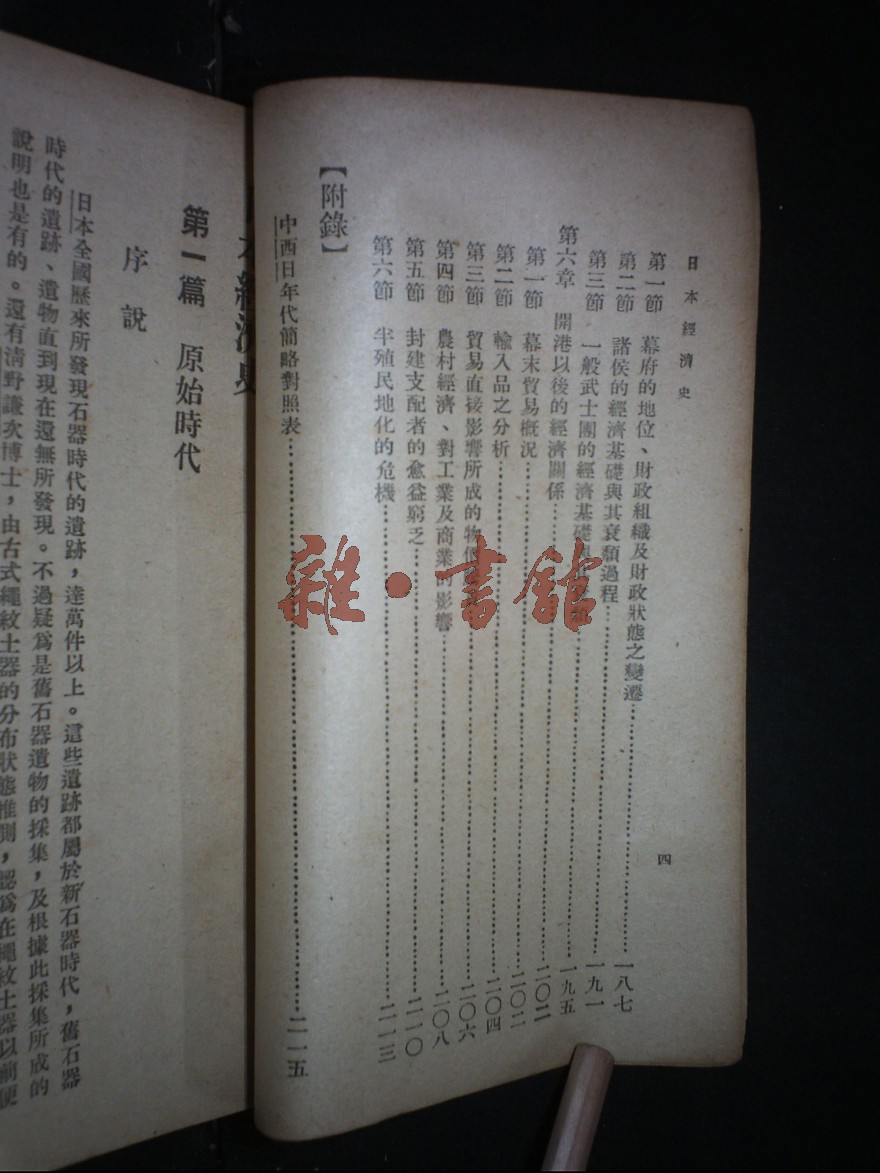 日本經濟史
四
第一節 幕府的地位、財政組織及財政狀態之變遷……一八七
第二節 諸侯的經濟基礎與其衰頹過程……一九一
第三節 一般武士團的經濟基礎與……一九五
第六章 開港以後的經濟關係……二〇二
第一節 幕末貿易概況……二〇二
第二節 輸入品之分析……二〇四
第三節 貿易直接影響所成的物價……二〇六
第四節 農村經濟、對工業及商業的影響……二〇八
第五節 封建支配者的愈益窮乏……二一〇
第六節 半殖民地化的危機……二一三
【附錄】
中西日年代簡略對照表……二一五
本經濟史
第一篇 原始時代
序說
日本全國歷來所發現石器時代的遺跡，達萬件以上。這些遺跡都屬於新石器時代，舊石器
時代的遺跡、遺物直到現在還無所發現。不過疑爲是舊石器遺物的採集，及根據此採集所成的
說明也是有的。還有清野謙次博士，由古式繩紋土器的分布狀態推測，認爲在繩紋土器以前便
雜·書館